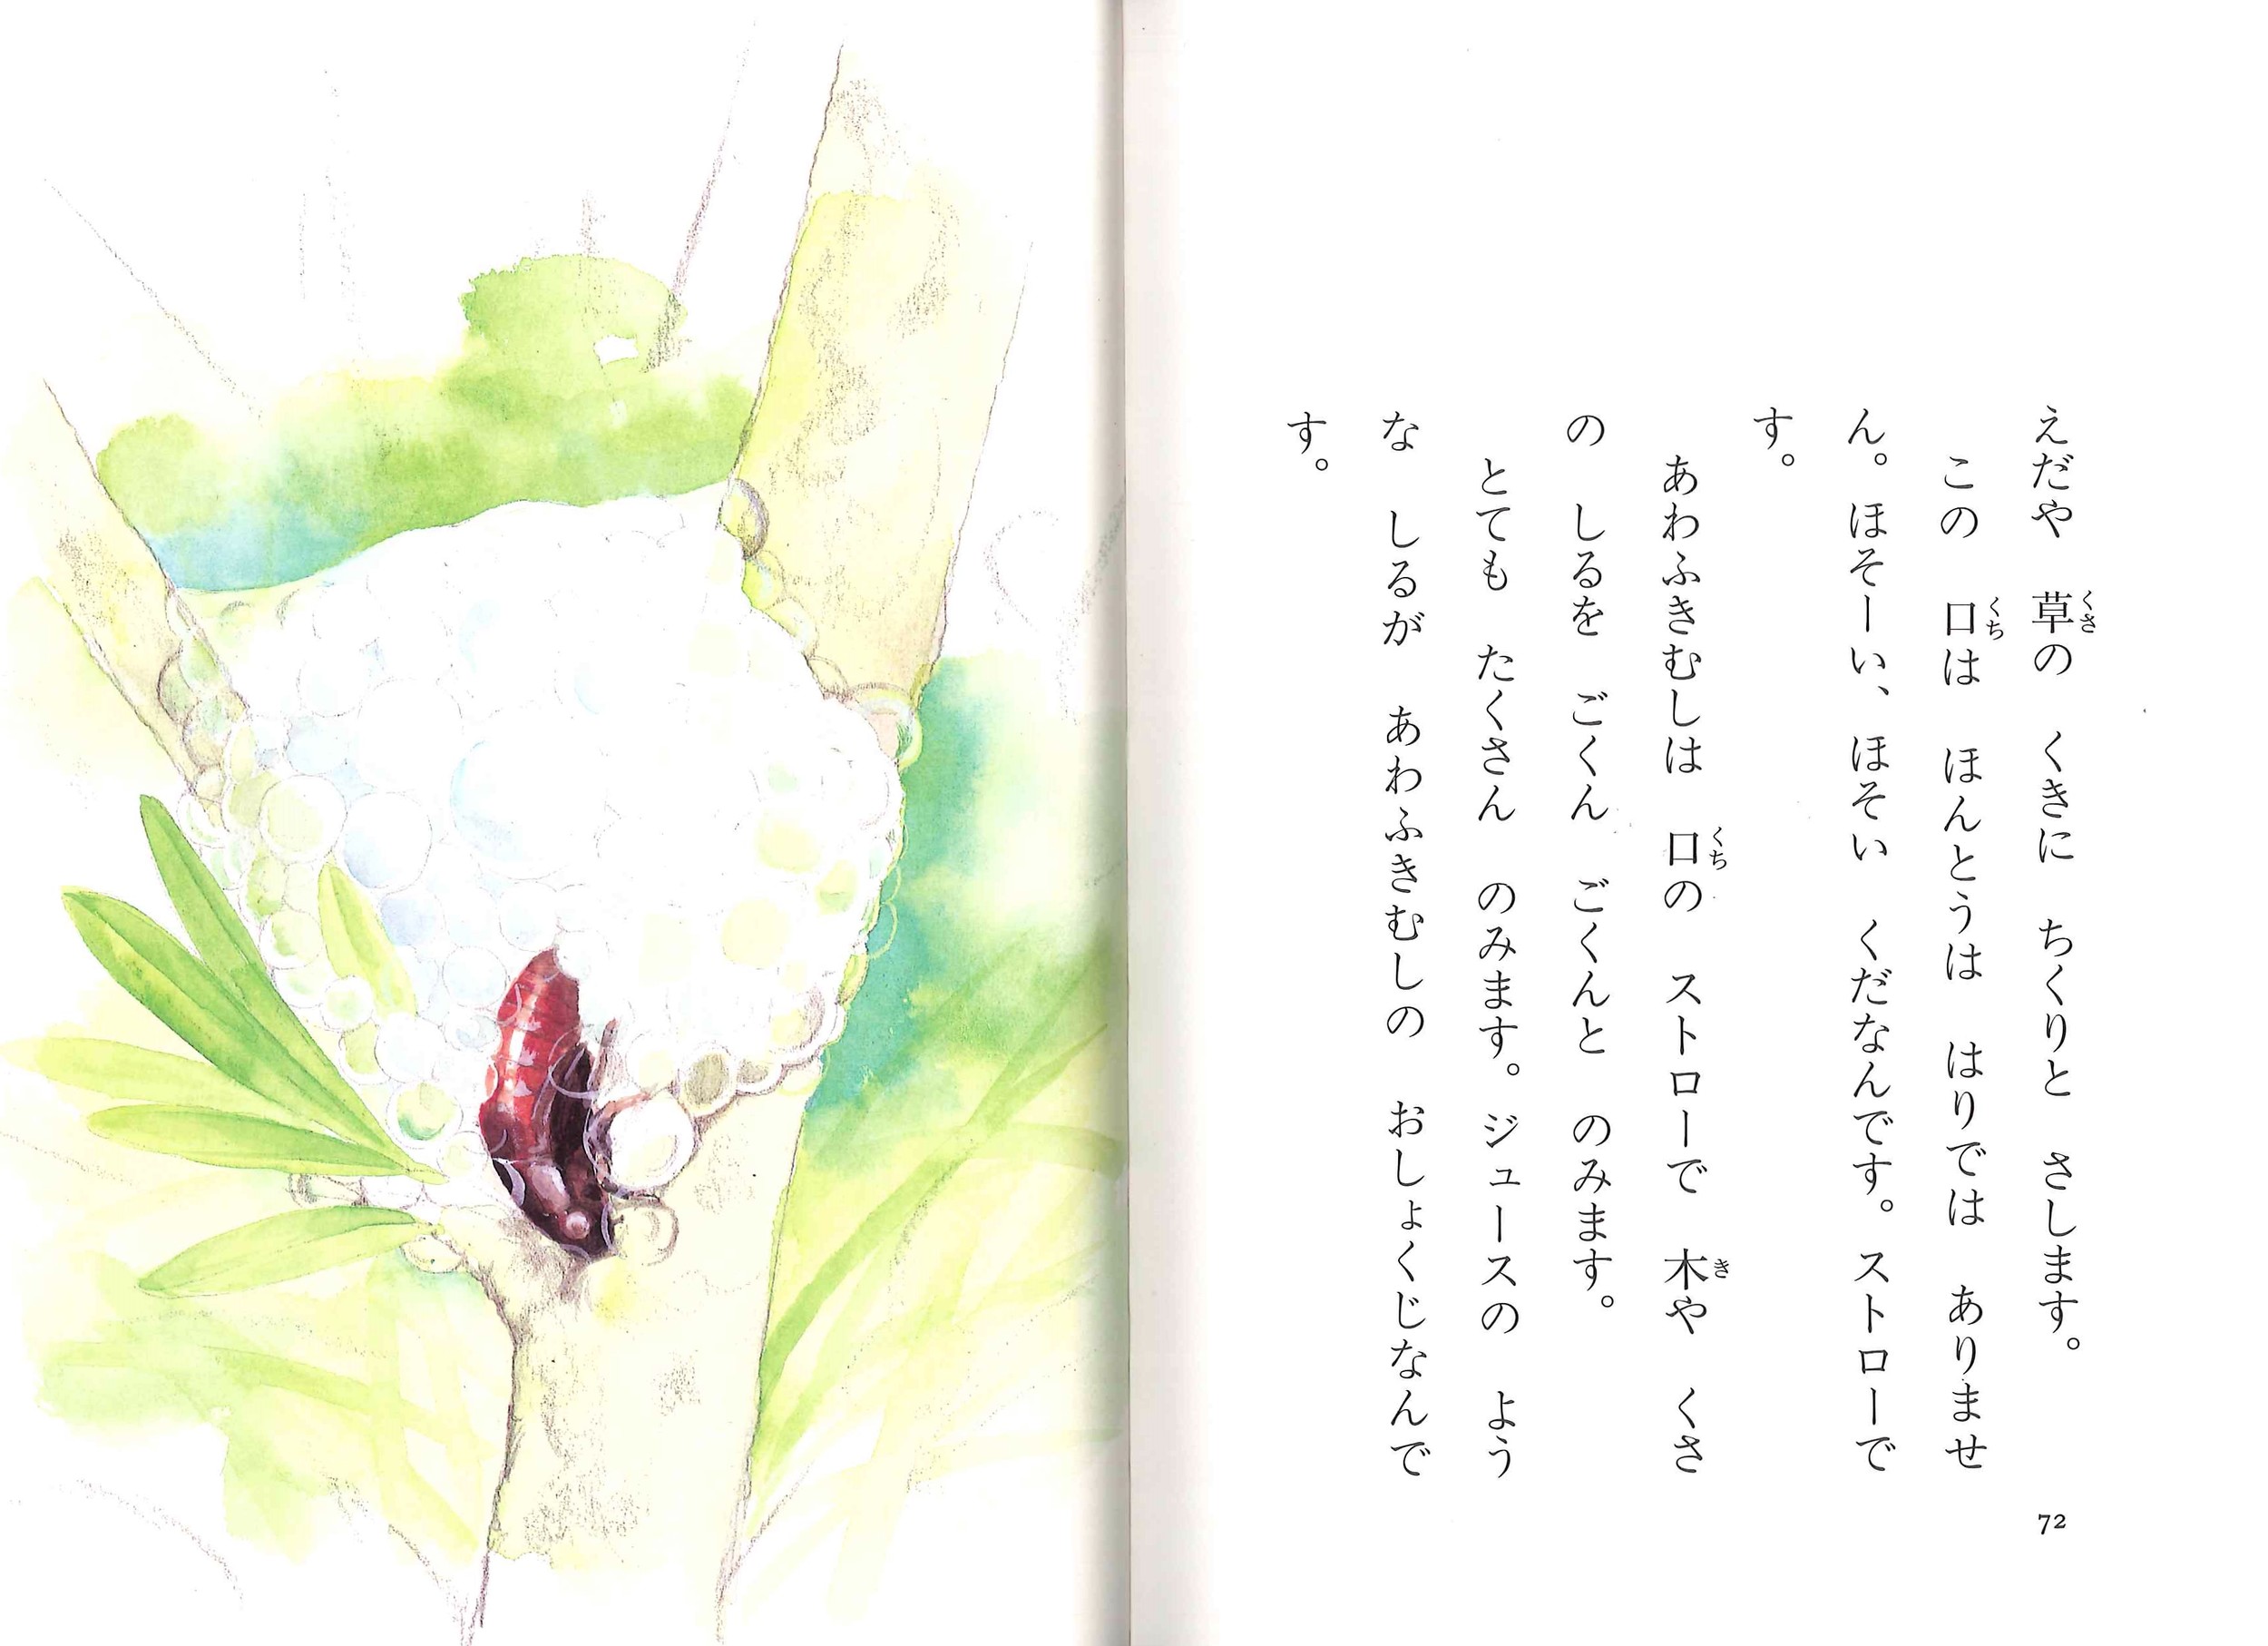 えだや 草の くきに ちくりと さします。
この 口は ほんとうは はりでは ありませ
ん。ほそーい、ほそい くだなんです。ストローで
す。
あわふきむしは 口の ストローで 木や くさ
の しるを ごくん ごくんと のみます。
とても たくさん のみます。ジュースの よう
な しるが あわふきむしの おしょくじなんで
す。
72